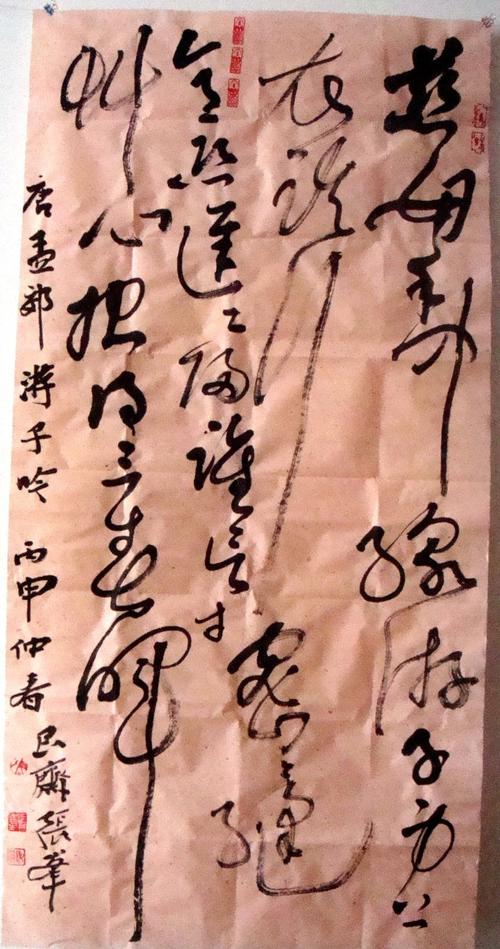 慈母手中線游子身上
衣臨行密密縫
意恐遲〻歸誰言寸
艸心報得三春暉
唐孟郊游子吟 丙申仲春 齋張峯